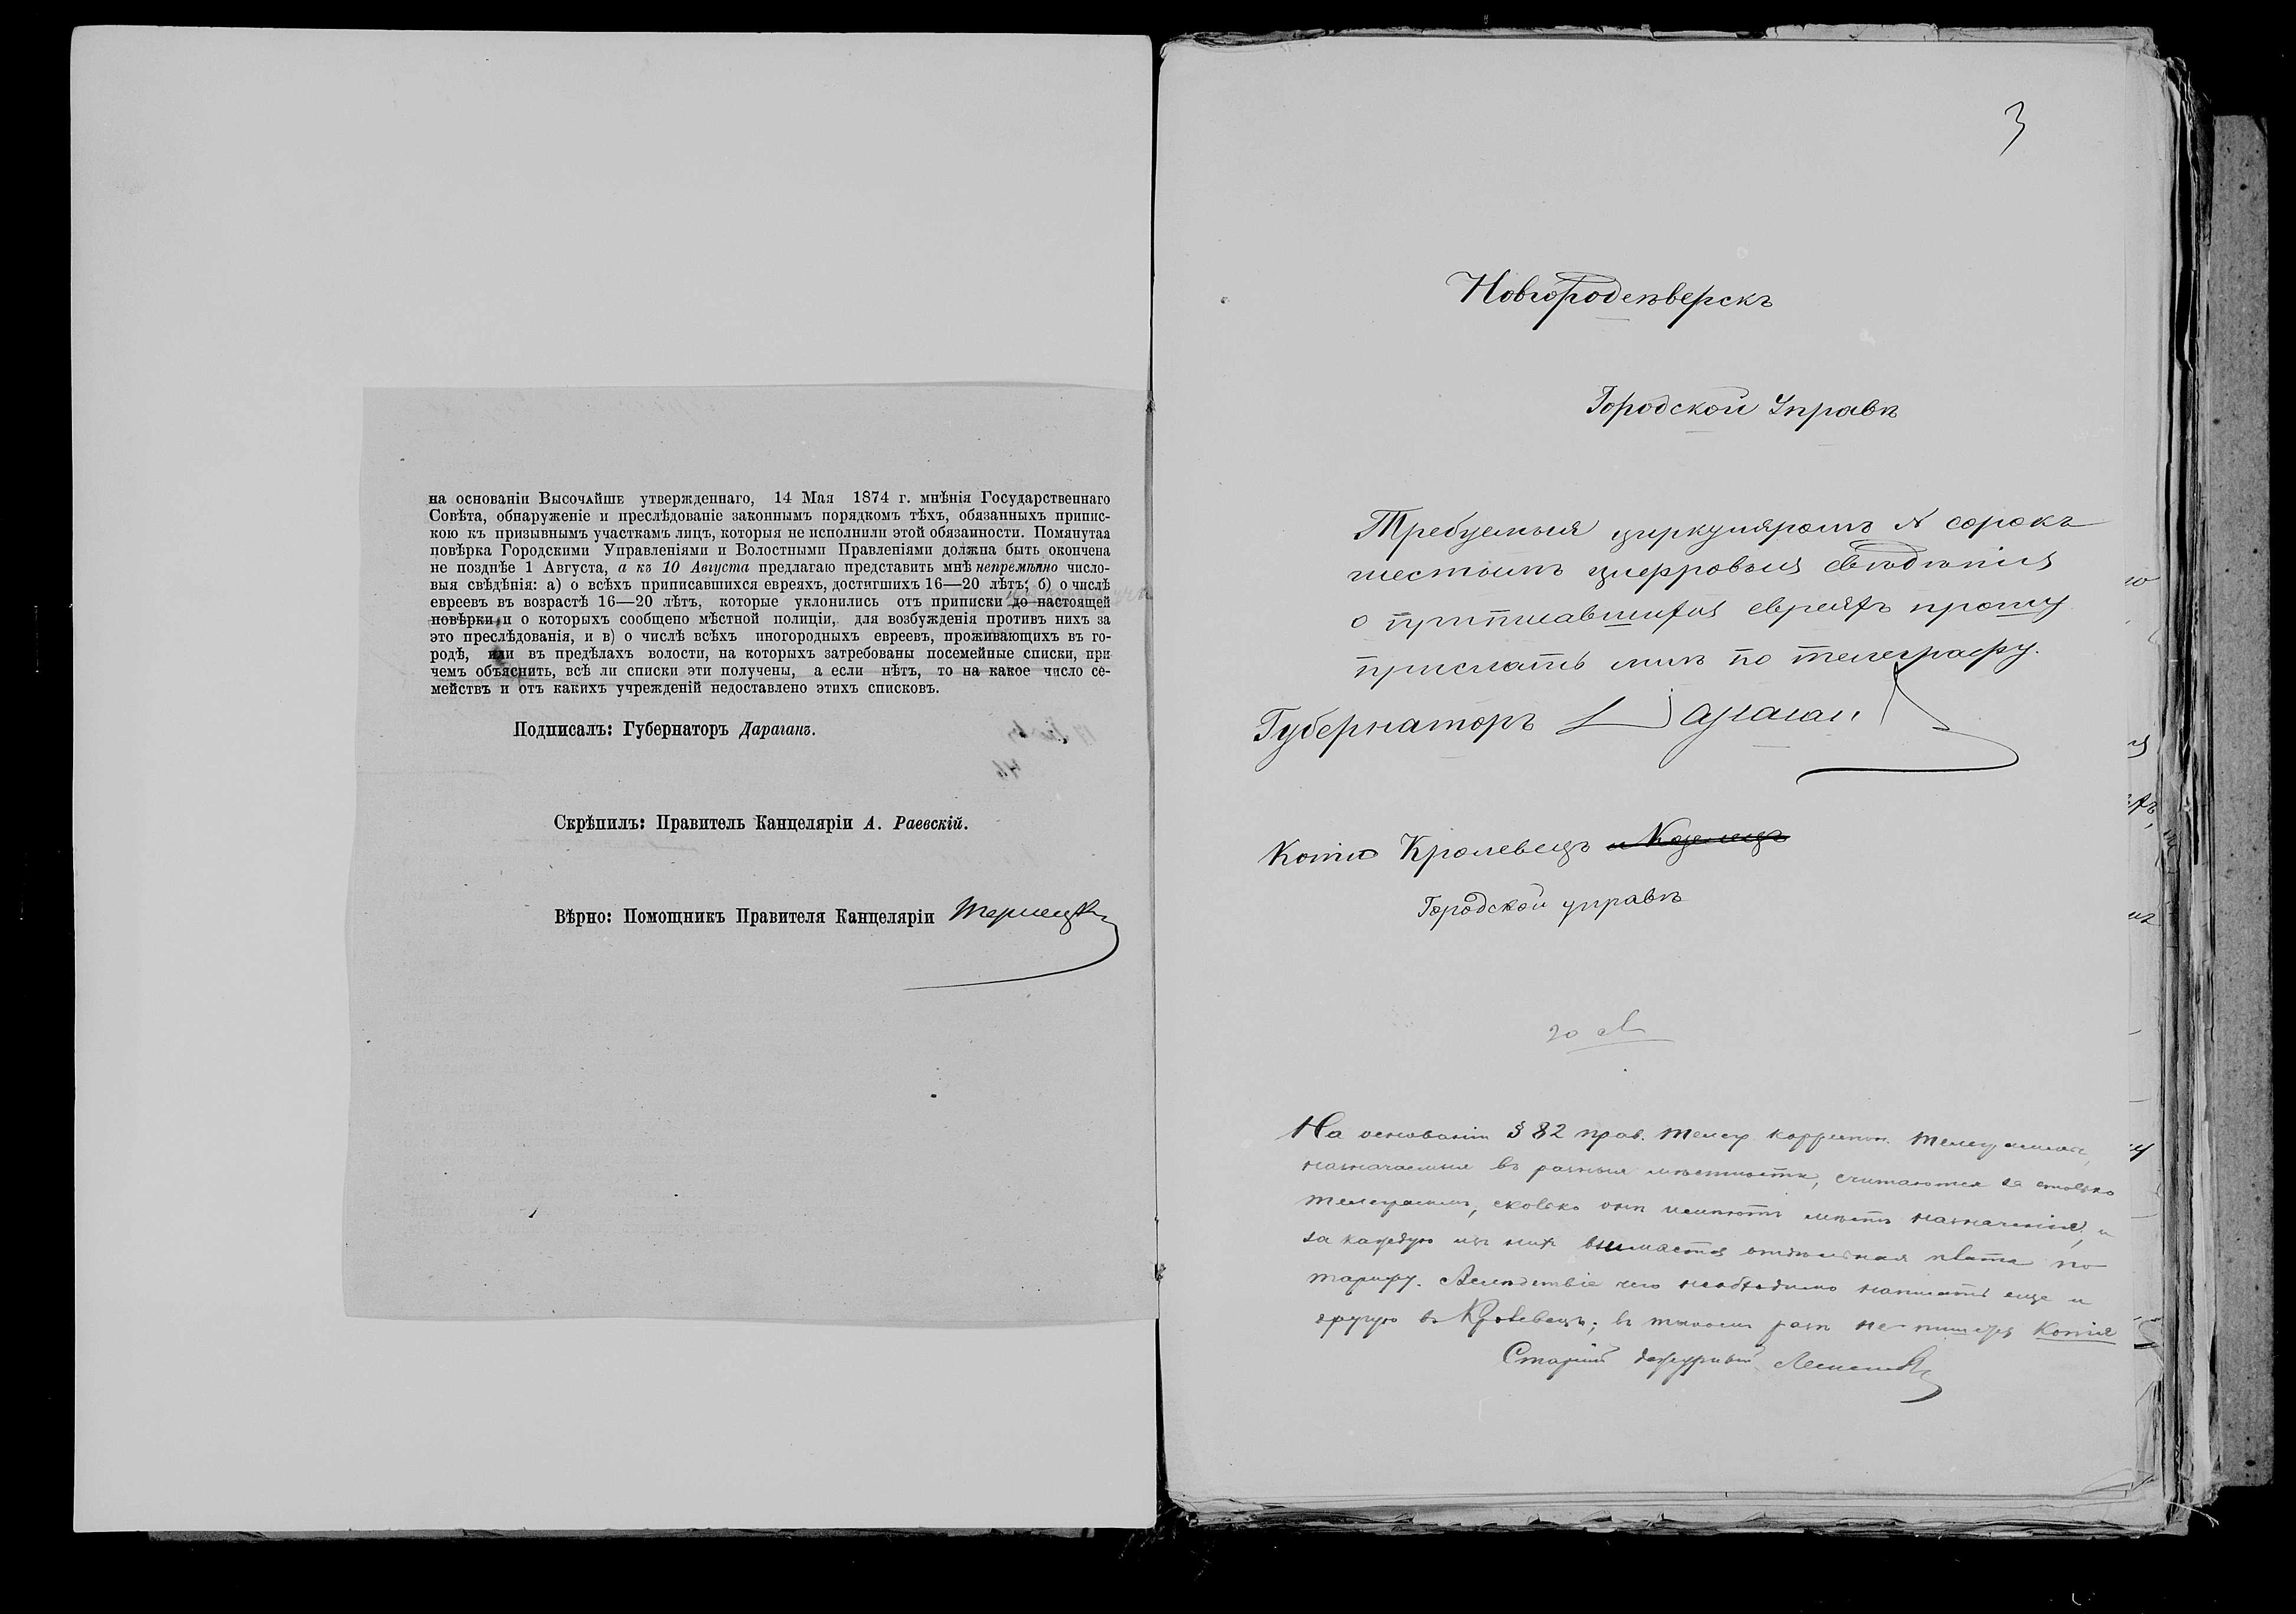 на основаніи Высочайше утвержденнаго, 14 Мая 1874 г. мнѣнія Государственнаго
Совѣта, обнаруженіе и преслѣдованіе законнымъ порядкомъ тѣхъ, обязанныхъ припис-
кою къ призывнымъ участкамъ лицъ, которыя не исполнили этой обязанности. Помянутая
повѣрка Городскими Управленіями и Волостными Правленіями должна быть окончена
не позднѣе 1 Августа, а къ 10 Августа предлагаю представить мнѣ непремѣнно число-
выя свѣдѣнія: а) о всѣхъ приписавшихся евреяхъ, достигшихъ 16—20 лѣтъ; б) о числѣ
евреевъ въ возрастѣ 16—20 лѣтъ, которые уклонились отъ приписки до настоящей
повѣрки и о которыхъ сообщено мѣстной полиціи, для возбужденія противъ нихъ за
это преслѣдованія, и в) о числѣ всѣхъ иногородныхъ евреевъ, проживающихъ въ го-
родѣ, или въ предѣлахъ волости, на которыхъ затребованы посемейные списки, при
чемъ объяснить, всѣ ли списки эти получены, а если нѣтъ, то на какое число се-
мействъ и отъ какихъ учрежденій недоставлено этихъ списковъ.
Подписалъ: Губернаторъ Дараганъ.
Скрѣпилъ: Правитель Канцеляріи А. Раевскій.
Вѣрно: Помощникъ Правителя Канцеляріи
3
Новгородсѣверскъ
Городской Управѣ
Требуемыя циркуляромъ N сорокъ
шестымъ цифровыя свѣдѣнія
о приписавшихся евреяхъ прошу
прислать мнѣ по телеграфу.
Губернаторъ Дараган
Копія Кролевецъ и Козелецъ
Городской управѣ
На основаніи § 82 прав. телегр. корреспон. телеграммы,
назначаемыя въ разныя мѣстности, считаются за столько
телеграммъ, сколько онѣ имѣютъ мѣстъ назначенія, и
за каждую изъ нихъ взимается отдѣльная плата по
тарифу. Вслѣдствіе чего необходимо написать еще и
другую въ Кролевецъ; въ такомъ разѣ не пишется Копія
Старшій дежурный